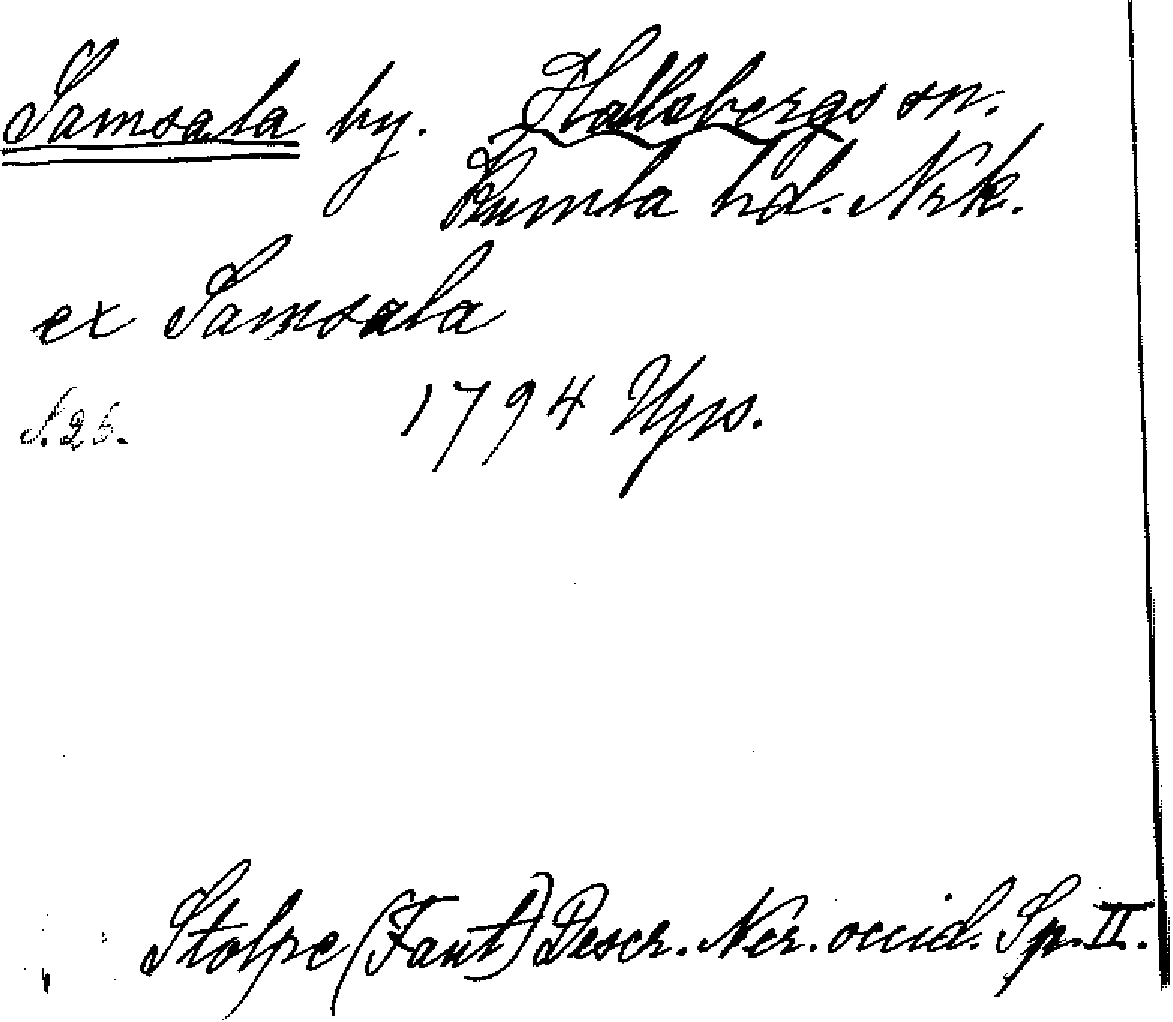 Samsala by. Hallsbergs sn.
Kumla hd. Nrk.
ex Samsala
S. 26. 1794 Ups.
Stolpe (Fant) Descr. Ner. occid. Sp. II.